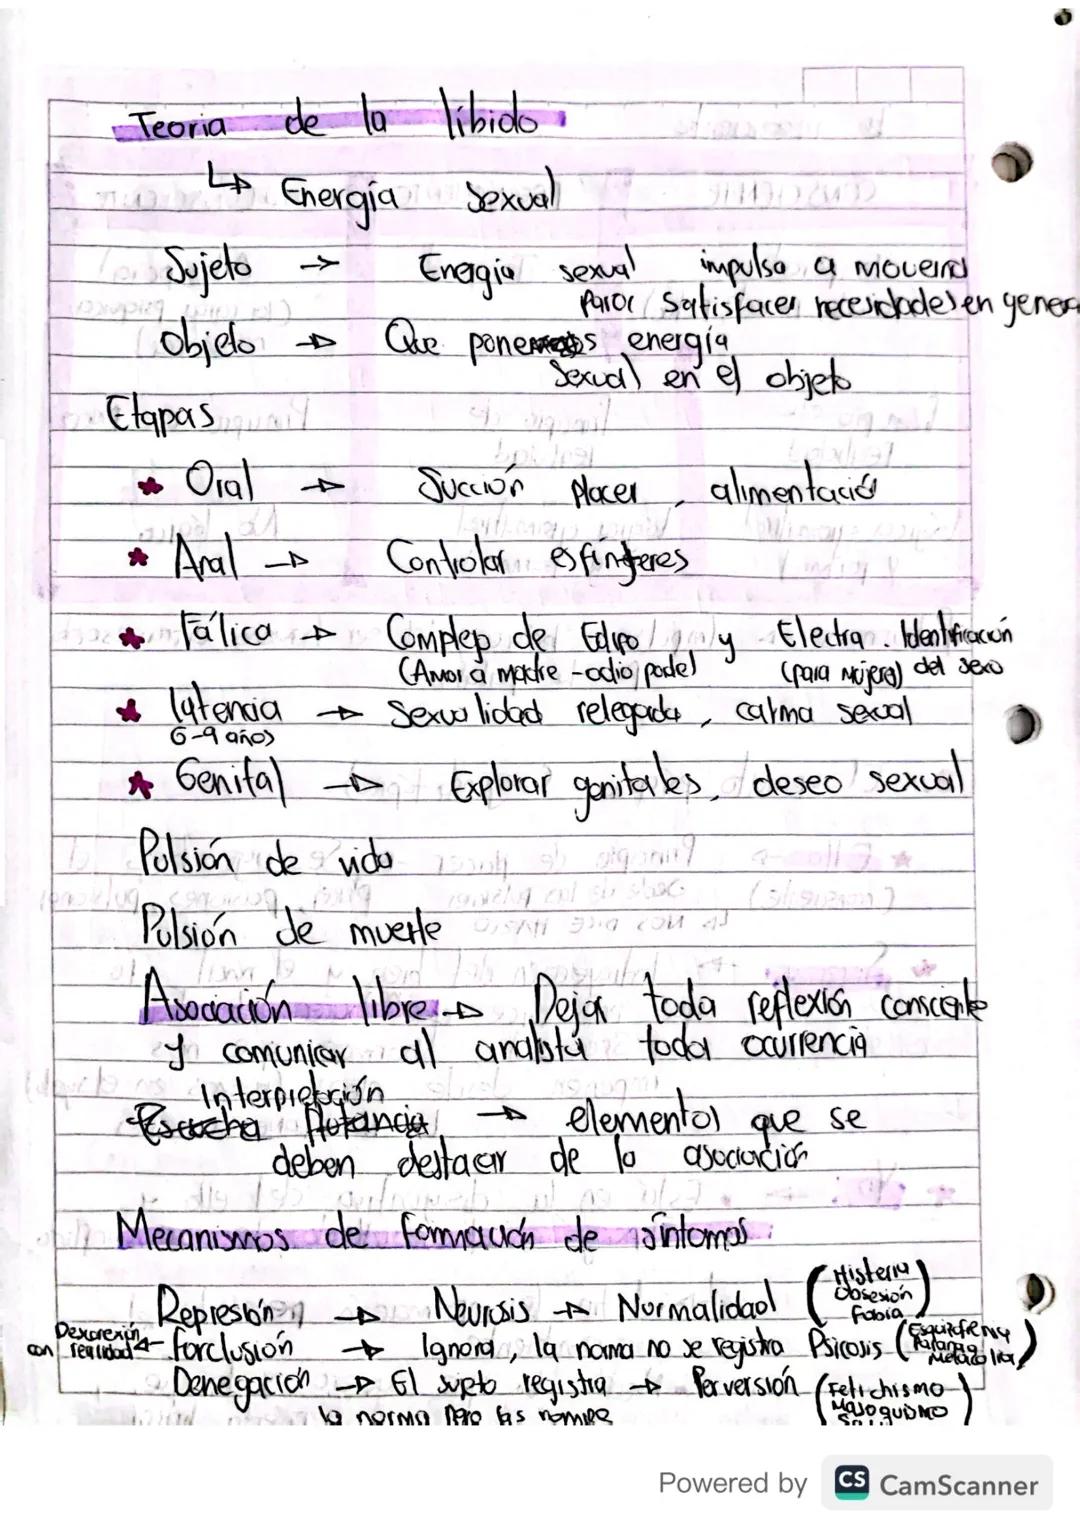 Teoria de la líbido
↳ Energía Sexual
Sujeto → Energia sexual impulsa a movernos
para satisfacer necesidades en genera
Objeto → Que ponemos energía
Sexual en el objeto
Etapas
★ Oral → Succión placer, alimentació
★ Anal → Controlar esfínteres
★ Fálica → Complejo de Edipo y Electra. Identificación
(Amor a madre - odio padre) (para mujeres) del sexo
★ latencia → Sexualidad relegada, calma sexual
6-9 años
★ Genital → Explorar genitales, deseo sexual
Pulsión de vida
Pulsión de muerte
Asociación libre → Dejar toda reflexión consciente
y comunicar al analista toda ocurrencia
Interpretación
Escucha flotancia → elementos que se
deben destacar de la asociación
Mecanismos de formación de síntomas
Represión → Neurosis → Normalidad (Histeria
Obsesión
Fobia)
con realidad ← Forclusión → Ignora, la norma no se registra Psicosis (Esquizofrenia
Paranoia
Melancolia)
Denegación → El sujeto registra → Perversión (Fetichismo
Masoquismo
la norma pero
Powered by CS CamScanner